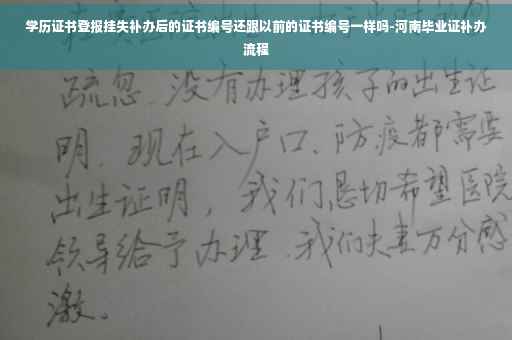 学历证书登报挂失补办后的证书编号还跟以前的证书编号一样吗-河南毕业证补办
流程
疏忽.没有办理孩子的出生证
明.现在入户口、防疫都需要
出生证明,我们恳切希望医院
领导给予办理.我们夫妻万分感
激。